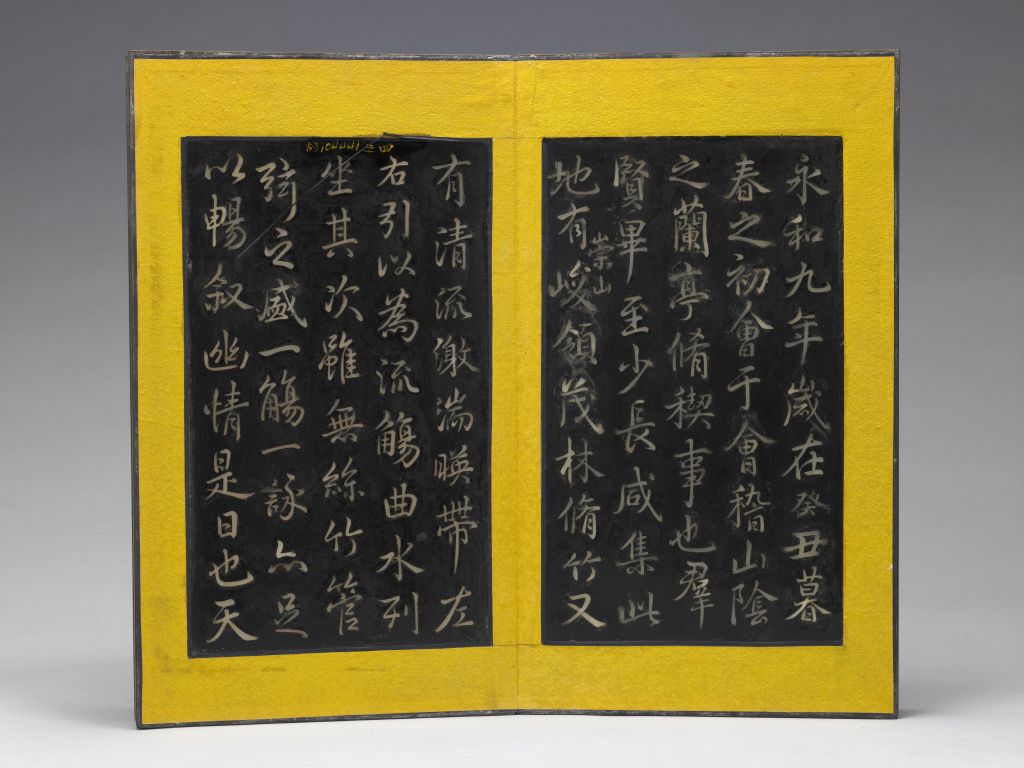 永和九年歲在癸丑暮
春之初會于會稽山陰
之蘭亭脩稧事也羣
賢畢至少長咸集此
地有崇山峻領茂林脩竹又
有清流激湍暎帶左
右引以為流觴曲水列
坐其次雖無絲竹管
弦之盛一觴一詠亦足
以暢敘幽情是日也天